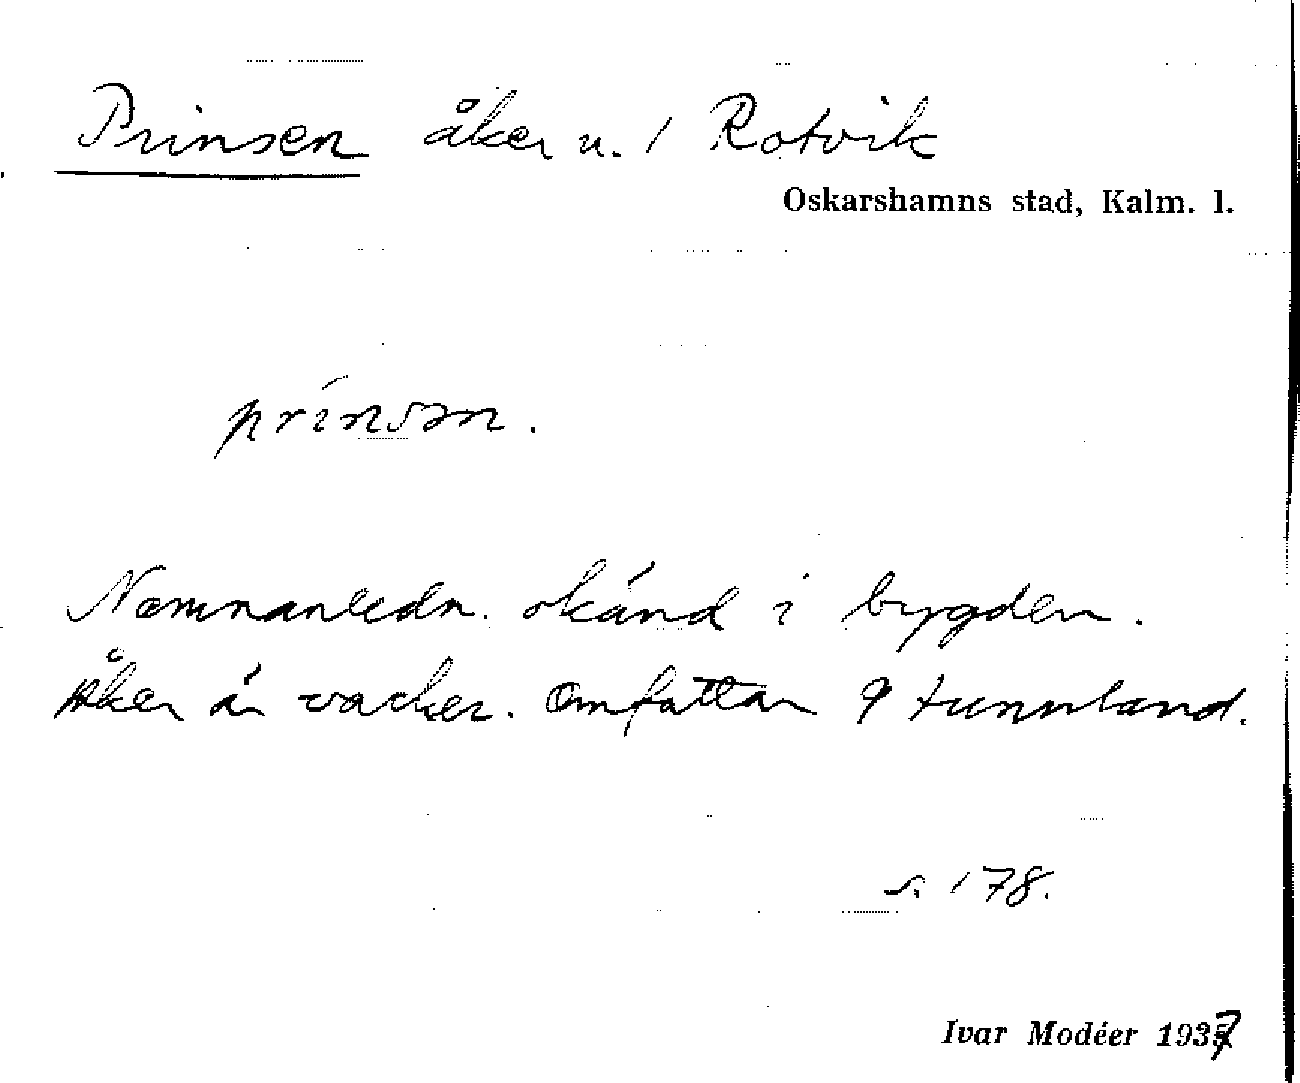 Prinsen åker u. 1 Rotvik
Oskarshamns stad, Kalm. l.
prinsən.
Namnanledn. okänd i bygden.
Åker är vacker. Omfattar 9 tunnland.
s. 178.
Ivar Modéer 1937